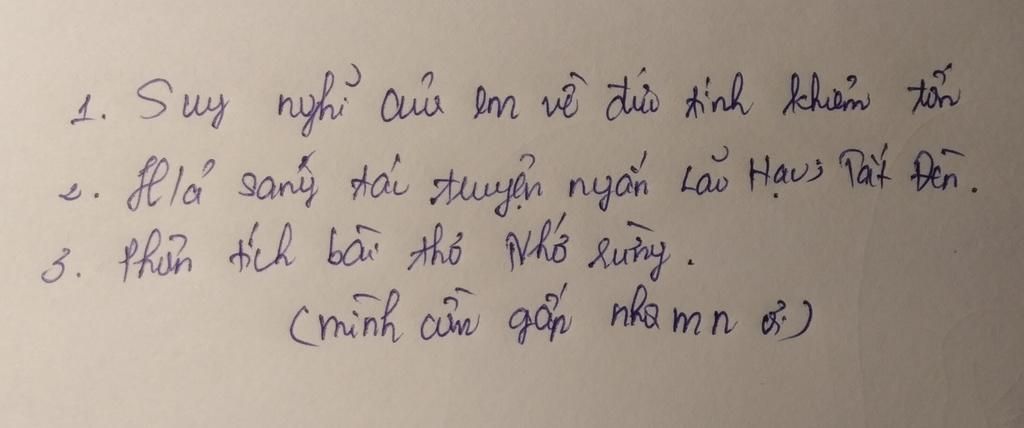 1. Suy nghĩ của em về đức tính khiêm tốn
2. Hãy sáng tác truyện ngắn Lão Hạc; Tắt Đèn.
3. Phân tích bài thơ Nhớ Rừng.
(mình cần gấp nha mn ơi)